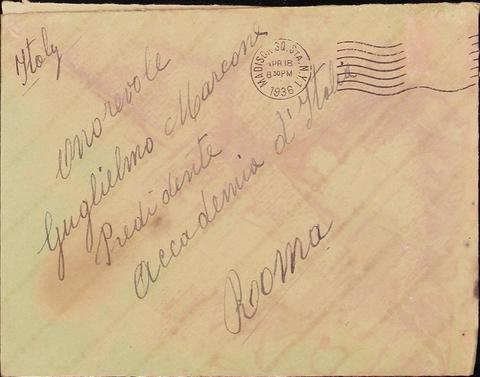 Italy
MADISON SQ. STA. N.Y.
APR 18
8 30 PM
1936
Onorevole
Guglielmo Marconi
Predidente
Accademia d'Italia
Roma